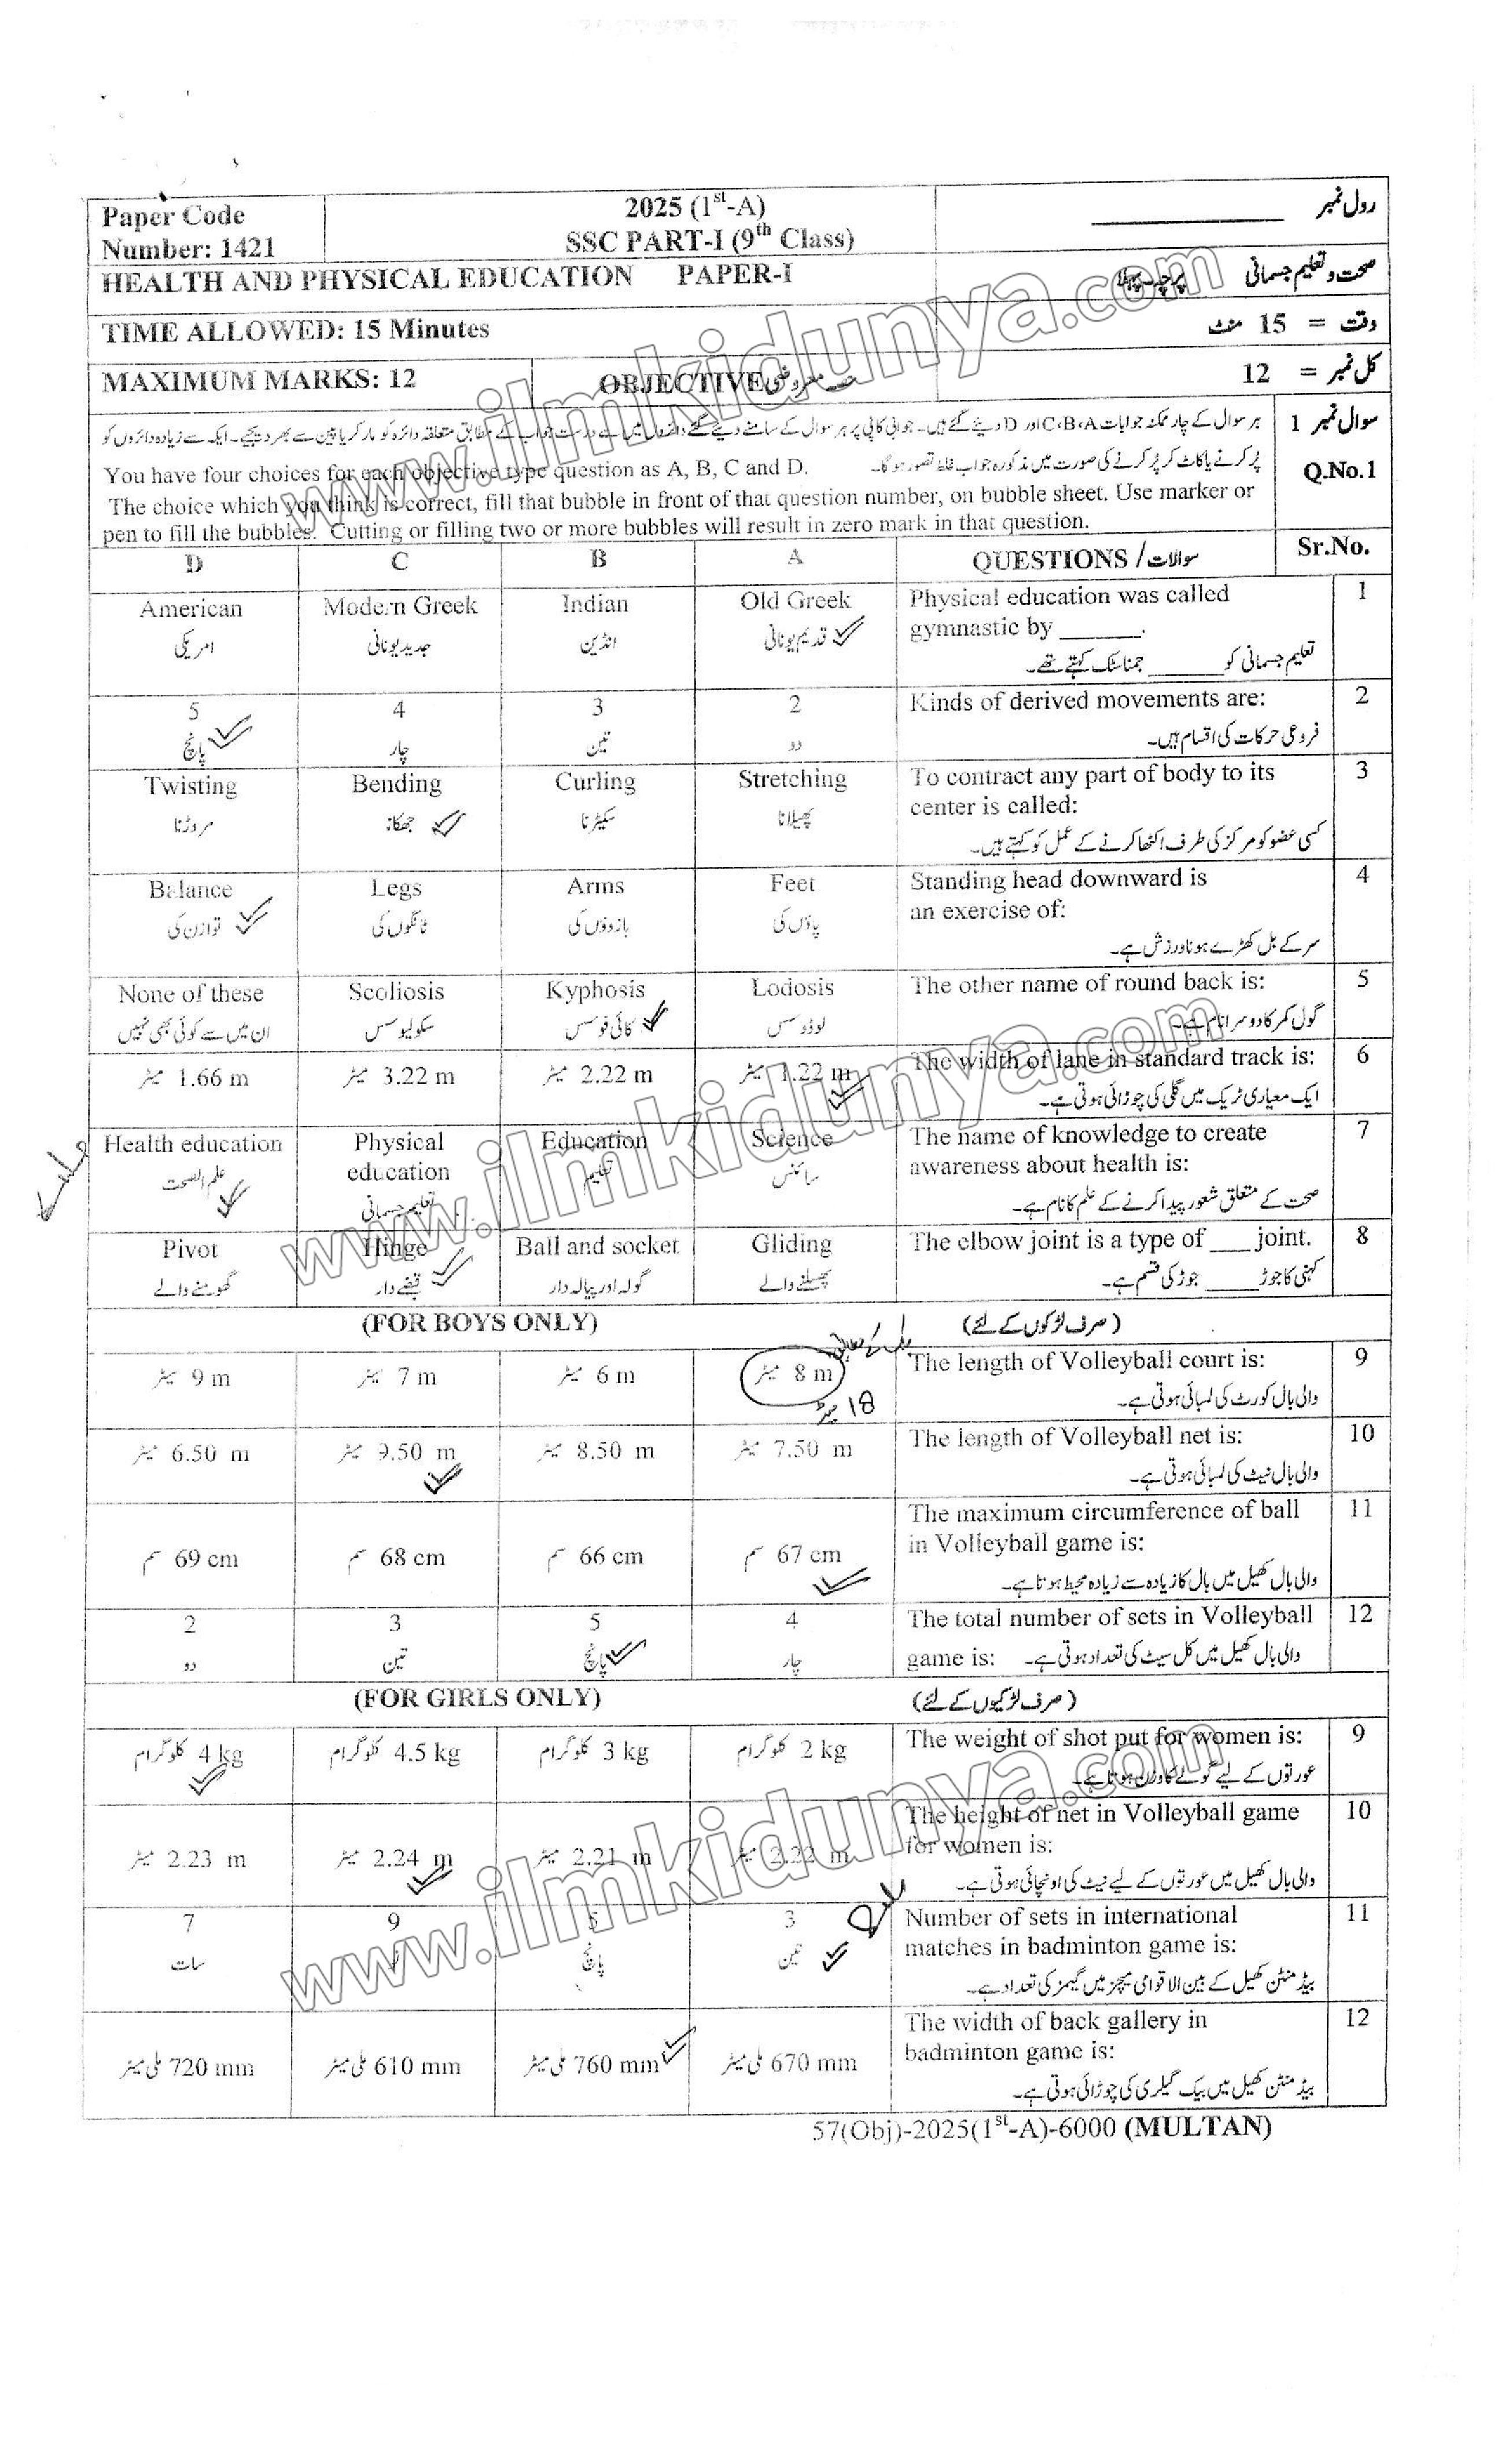 Paper Code
Number: 1421
2025 (1st-A)
SSC PART-I (9th Class)
رول نمبر ____________
HEALTH AND PHYSICAL EDUCATION PAPER-I
صحت و تعلیم جسمانی
TIME ALLOWED: 15 Minutes
وقت = 15 منٹ
MAXIMUM MARKS: 12
OBJECTIVE
کل نمبر = 12
سوال نمبر 1
Q.No.1
ہر سوال کے چار ممکنہ جوابات A، B، C اور D دیئے گئے ہیں۔ جوابی کاپی پر ہر سوال کے سامنے دیئے گئے دائروں میں سے درست جواب کے مطابق متعلقہ دائرہ کو مارکر یا پین سے بھر دیجیے۔ ایک سے زیادہ دائروں کو
پُر کرنے یا کاٹ کر پُر کرنے کی صورت میں مذکورہ جواب غلط تصور ہوگا۔
You have four choices for each objective type question as A, B, C and D.
The choice which you think is correct, fill that bubble in front of that question number, on bubble sheet. Use marker or
pen to fill the bubbles. Cutting or filling two or more bubbles will result in zero mark in that question.
D C B A QUESTIONS / سوالات Sr.No.
American Modern Greek Indian Old Greek Physical education was called 1
gymnastic by ______.
امریکی جدید یونانی انڈین قدیم یونانی
تعلیم جسمانی کو ______ جمناسٹک کہتے تھے۔
5 4 3 2 Kinds of derived movements are: 2
پانچ چار تین دو فروعی حرکات کی اقسام ہیں۔
Twisting Bending Curling Stretching To contract any part of body to its 3
center is called:
مروڑنا جھکانا سکیڑنا پھیلانا
کسی عضو کو مرکز کی طرف اکٹھا کرنے کے عمل کو کہتے ہیں۔
Balance Legs Arms Feet Standing head downward is 4
an exercise of:
توازن کی ٹانگوں کی بازوؤں کی پاؤں کی
سر کے بل کھڑے ہونا ورزش ہے۔
None of these Scoliosis Kyphosis Lodosis The other name of round back is: 5
ان میں سے کوئی بھی نہیں سکولیوسس کائی فوسس لوڈوسس گول کمر کا دوسرا نام ہے۔
1.66 m میٹر 3.22 m میٹر 2.22 m میٹر 1.22 m میٹر The width of lane in standard track is: 6
ایک معیاری ٹریک میں گلی کی چوڑائی ہوتی ہے۔
Health education Physical education Education Science The name of knowledge to create 7
awareness about health is:
علم الصحت تعلیم جسمانی تعلیم سائنس
صحت کے متعلق شعور پیدا کرنے کے علم کا نام ہے۔
Pivot Hinge Ball and socket Gliding The elbow joint is a type of ___ joint. 8
گھومنے والے قبضے دار گولہ اور پیالہ دار پھسلنے والے کہنی کا جوڑ ____ جوڑ کی قسم ہے۔
(FOR BOYS ONLY) (صرف لڑکوں کے لئے)
9 m میٹر 7 m میٹر 6 m میٹر 8 m میٹر The length of Volleyball court is: 9
18 میٹر
والی بال کورٹ کی لمبائی ہوتی ہے۔
6.50 m میٹر 9.50 m میٹر 8.50 m میٹر 7.50 m میٹر The length of Volleyball net is: 10
والی بال نیٹ کی لمبائی ہوتی ہے۔
The maximum circumference of ball 11
in Volleyball game is:
69 cm سم 68 cm سم 66 cm سم 67 cm سم
والی بال کھیل میں بال کا زیادہ سے زیادہ محیط ہوتا ہے۔
2 3 5 4 The total number of sets in Volleyball 12
دو تین پانچ چار game is: والی بال کھیل میں کل سیٹ کی تعداد ہوتی ہے۔
(FOR GIRLS ONLY) (صرف لڑکیوں کے لئے)
4 kg کلوگرام 4.5 kg کلوگرام 3 kg کلوگرام 2 kg کلوگرام The weight of shot put for women is: 9
عورتوں کے لیے گولے کا وزن ہوتا ہے۔
The height of net in Volleyball game 10
for women is:
2.23 m میٹر 2.24 m میٹر 2.21 m میٹر 2.22 m میٹر
والی بال کھیل میں عورتوں کے لیے نیٹ کی اونچائی ہوتی ہے۔
7 9 5 3 Number of sets in international 11
matches in badminton game is:
سات پانچ تین
بیڈمنٹن کھیل کے بین الاقوامی میچز میں گیمز کی تعداد ہے۔
The width of back gallery in 12
badminton game is:
720 mm ملی میٹر 610 mm ملی میٹر 760 mm ملی میٹر 670 mm ملی میٹر
بیڈمنٹن کھیل میں بیک گیلری کی چوڑائی ہوتی ہے۔
57(Obj)-2025(1st-A)-6000 (MULTAN)
www.ilmkidunya.com
www.ilmkidunya.com
www.ilmkidunya.com